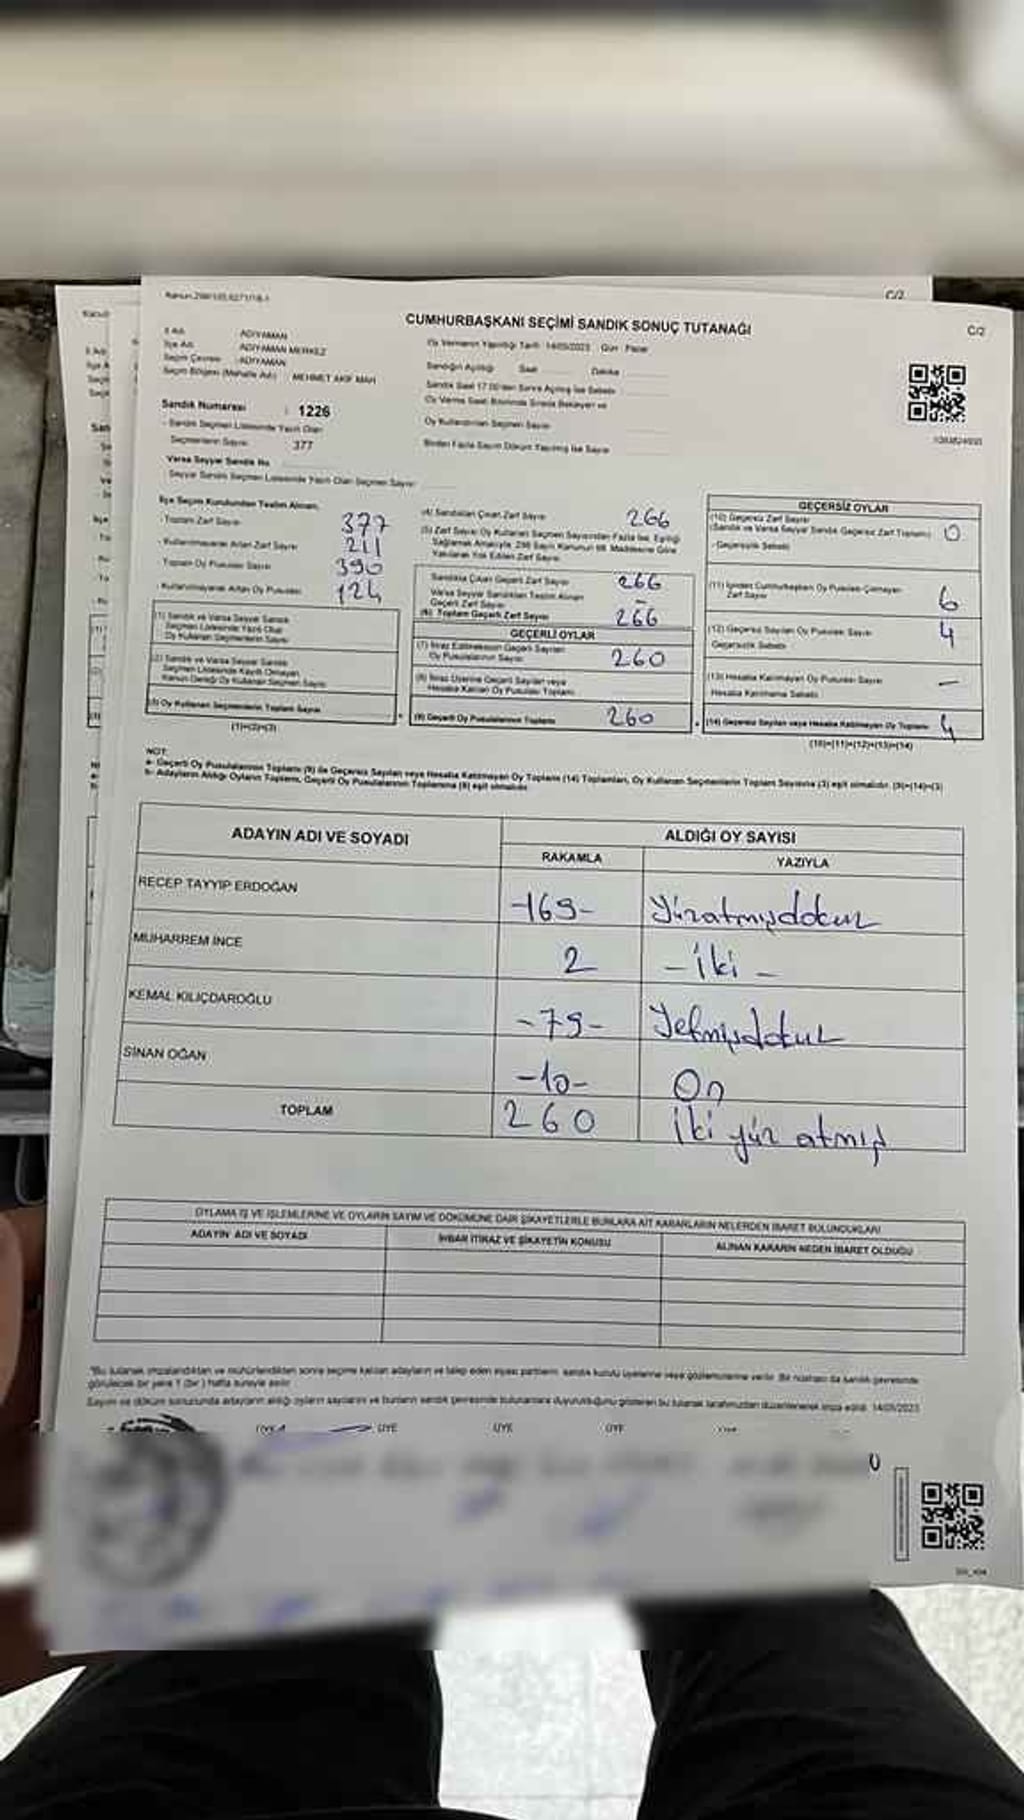 Kanun:298/105,6271/18-1
C/2
CUMHURBAŞKANI SEÇİMİ SANDIK SONUÇ TUTANAĞI
C/2
İl Adı : ADIYAMAN
İlçe Adı : ADIYAMAN MERKEZ
Seçim Çevresi : ADIYAMAN
Seçim Bölgesi (Mahalle Adı) : MEHMET AKİF MAH
Sandık Numarası : 1226
- Sandık Seçmen Listesinde Yazılı Olan
Seçmenlerin Sayısı : 377
Varsa Seyyar Sandık No
Seyyar Sandık Seçmen Listesinde Yazılı Olan Seçmen Sayısı
Oy Vermenin Yapıldığı Tarih: 14/05/2023 Gün : Pazar
Sandığın Açıldığı Saat Dakika
Sandık Saat 17.00'den Sonra Açılmış İse Sebebi
Oy Verme Saati Bitiminde Sırada Bekleyen ve
Oy Kullandırılan Seçmen Sayısı
Birden Fazla Sayım Döküm Yapılmış İse Sayısı
İlçe Seçim Kurulundan Teslim Alınan;
- Toplam Zarf Sayısı 377
- Kullanılmayarak Artan Zarf Sayısı 211
Toplam Oy Pusulası Sayısı 390
- Kullanılmayarak Artan Oy Pusulası 124
(1) Sandık ve Varsa Seyyar Sandık
Seçmen Listesinde Yazılı Olup
Oy Kullanan Seçmenlerin Sayısı
(2) Sandık ve Varsa Seyyar Sandık
Seçmen Listesinde Kayıtlı Olmayan
Kanun Gereği Oy Kullanan Seçmen Sayısı
(3) Oy Kullanan Seçmenlerin Toplam Sayısı
(1)+(2)=(3)
(4) Sandıktan Çıkan Zarf Sayısı 266
(5) Zarf Sayısı Oy Kullanan Seçmen Sayısından Fazla İse, Eşitliği
Sağlamak Amacıyla, 298 Sayılı Kanunun 98. Maddesine Göre
Yakılarak Yok Edilen Zarf Sayısı
Sandıkta Çıkan Geçerli Zarf Sayısı 266
Varsa Seyyar Sandıktan Teslim Alınan
Geçerli Zarf Sayısı -
(6) Toplam Geçerli Zarf Sayısı 266
GEÇERLİ OYLAR
(7) İtiraz Edilmeksizin Geçerli Sayılan
Oy Pusulalarının Sayısı 260
(8) İtiraz Üzerine Geçerli Sayılan veya
Hesaba Katılan Oy Pusulası Toplamı
(9) Geçerli Oy Pusulalarının Toplamı 260
GEÇERSİZ OYLAR
(10) Geçersiz Zarf Sayısı
(Sandık ve Varsa Seyyar Sandık Geçersiz Zarf Toplamı) 0
- Geçersizlik Sebebi
(11) İçinden Cumhurbaşkanı Oy Pusulası Çıkmayan
Zarf Sayısı 6
(12) Geçersiz Sayılan Oy Pusulası Sayısı 4
Geçersizlik Sebebi
(13) Hesaba Katılmayan Oy Pusulası Sayısı -
Hesaba Katılmama Sebebi
(14) Geçersiz Sayılan veya Hesaba Katılmayan Oy Toplamı 4
(10)+(11)+(12)+(13)=(14)
NOT:
a- Geçerli Oy Pusulalarının Toplamı (9) ile Geçersiz Sayılan veya Hesaba Katılmayan Oy Toplamı (14) Toplamları, Oy Kullanan Seçmenlerin Toplam Sayısına (3) eşit olmalıdır. (9)+(14)=(3)
b- Adayların Aldığı Oyların Toplamı, Geçerli Oy Pusulalarının Toplamına (9) eşit olmalıdır.
ADAYIN ADI VE SOYADI
ALDIĞI OY SAYISI
RAKAMLA YAZIYLA
RECEP TAYYİP ERDOĞAN -169- Yüzatmışdokuz
MUHARREM İNCE 2 - İki -
KEMAL KILIÇDAROĞLU -79- Yetmişdokuz
SİNAN OĞAN -10- On
TOPLAM 260 İki yüz atmış
OYLAMA İŞ VE İŞLEMLERİNE VE OYLARIN SAYIM VE DÖKÜMÜNE DAİR ŞİKAYETLERLE BUNLARA AİT KARARLARIN NELERDEN İBARET BULUNDUKLARI
ADAYIN ADI VE SOYADI İHBAR İTİRAZ VE ŞİKAYETİN KONUSU ALINAN KARARIN NEDEN İBARET OLDUĞU
*Bu tutanak imzalandıktan ve mühürlendikten sonra seçime katılan adayların ve talep eden siyasi partilerin sandık kurulu üyelerine veya gözlemcilerine verilir. Bir nüshası da sandık çevresinde
görülecek bir yere 1 (bir) hafta süreyle asılır.
Sayım ve döküm sonucunda adayların aldığı oyların sayılarını ve bunların sandık çevresinde bulunanlara duyurulduğunu gösteren bu tutanak tarafımızdan düzenlenerek imza edildi. 14/05/2023
ÜYE ÜYE ÜYE ÜYE